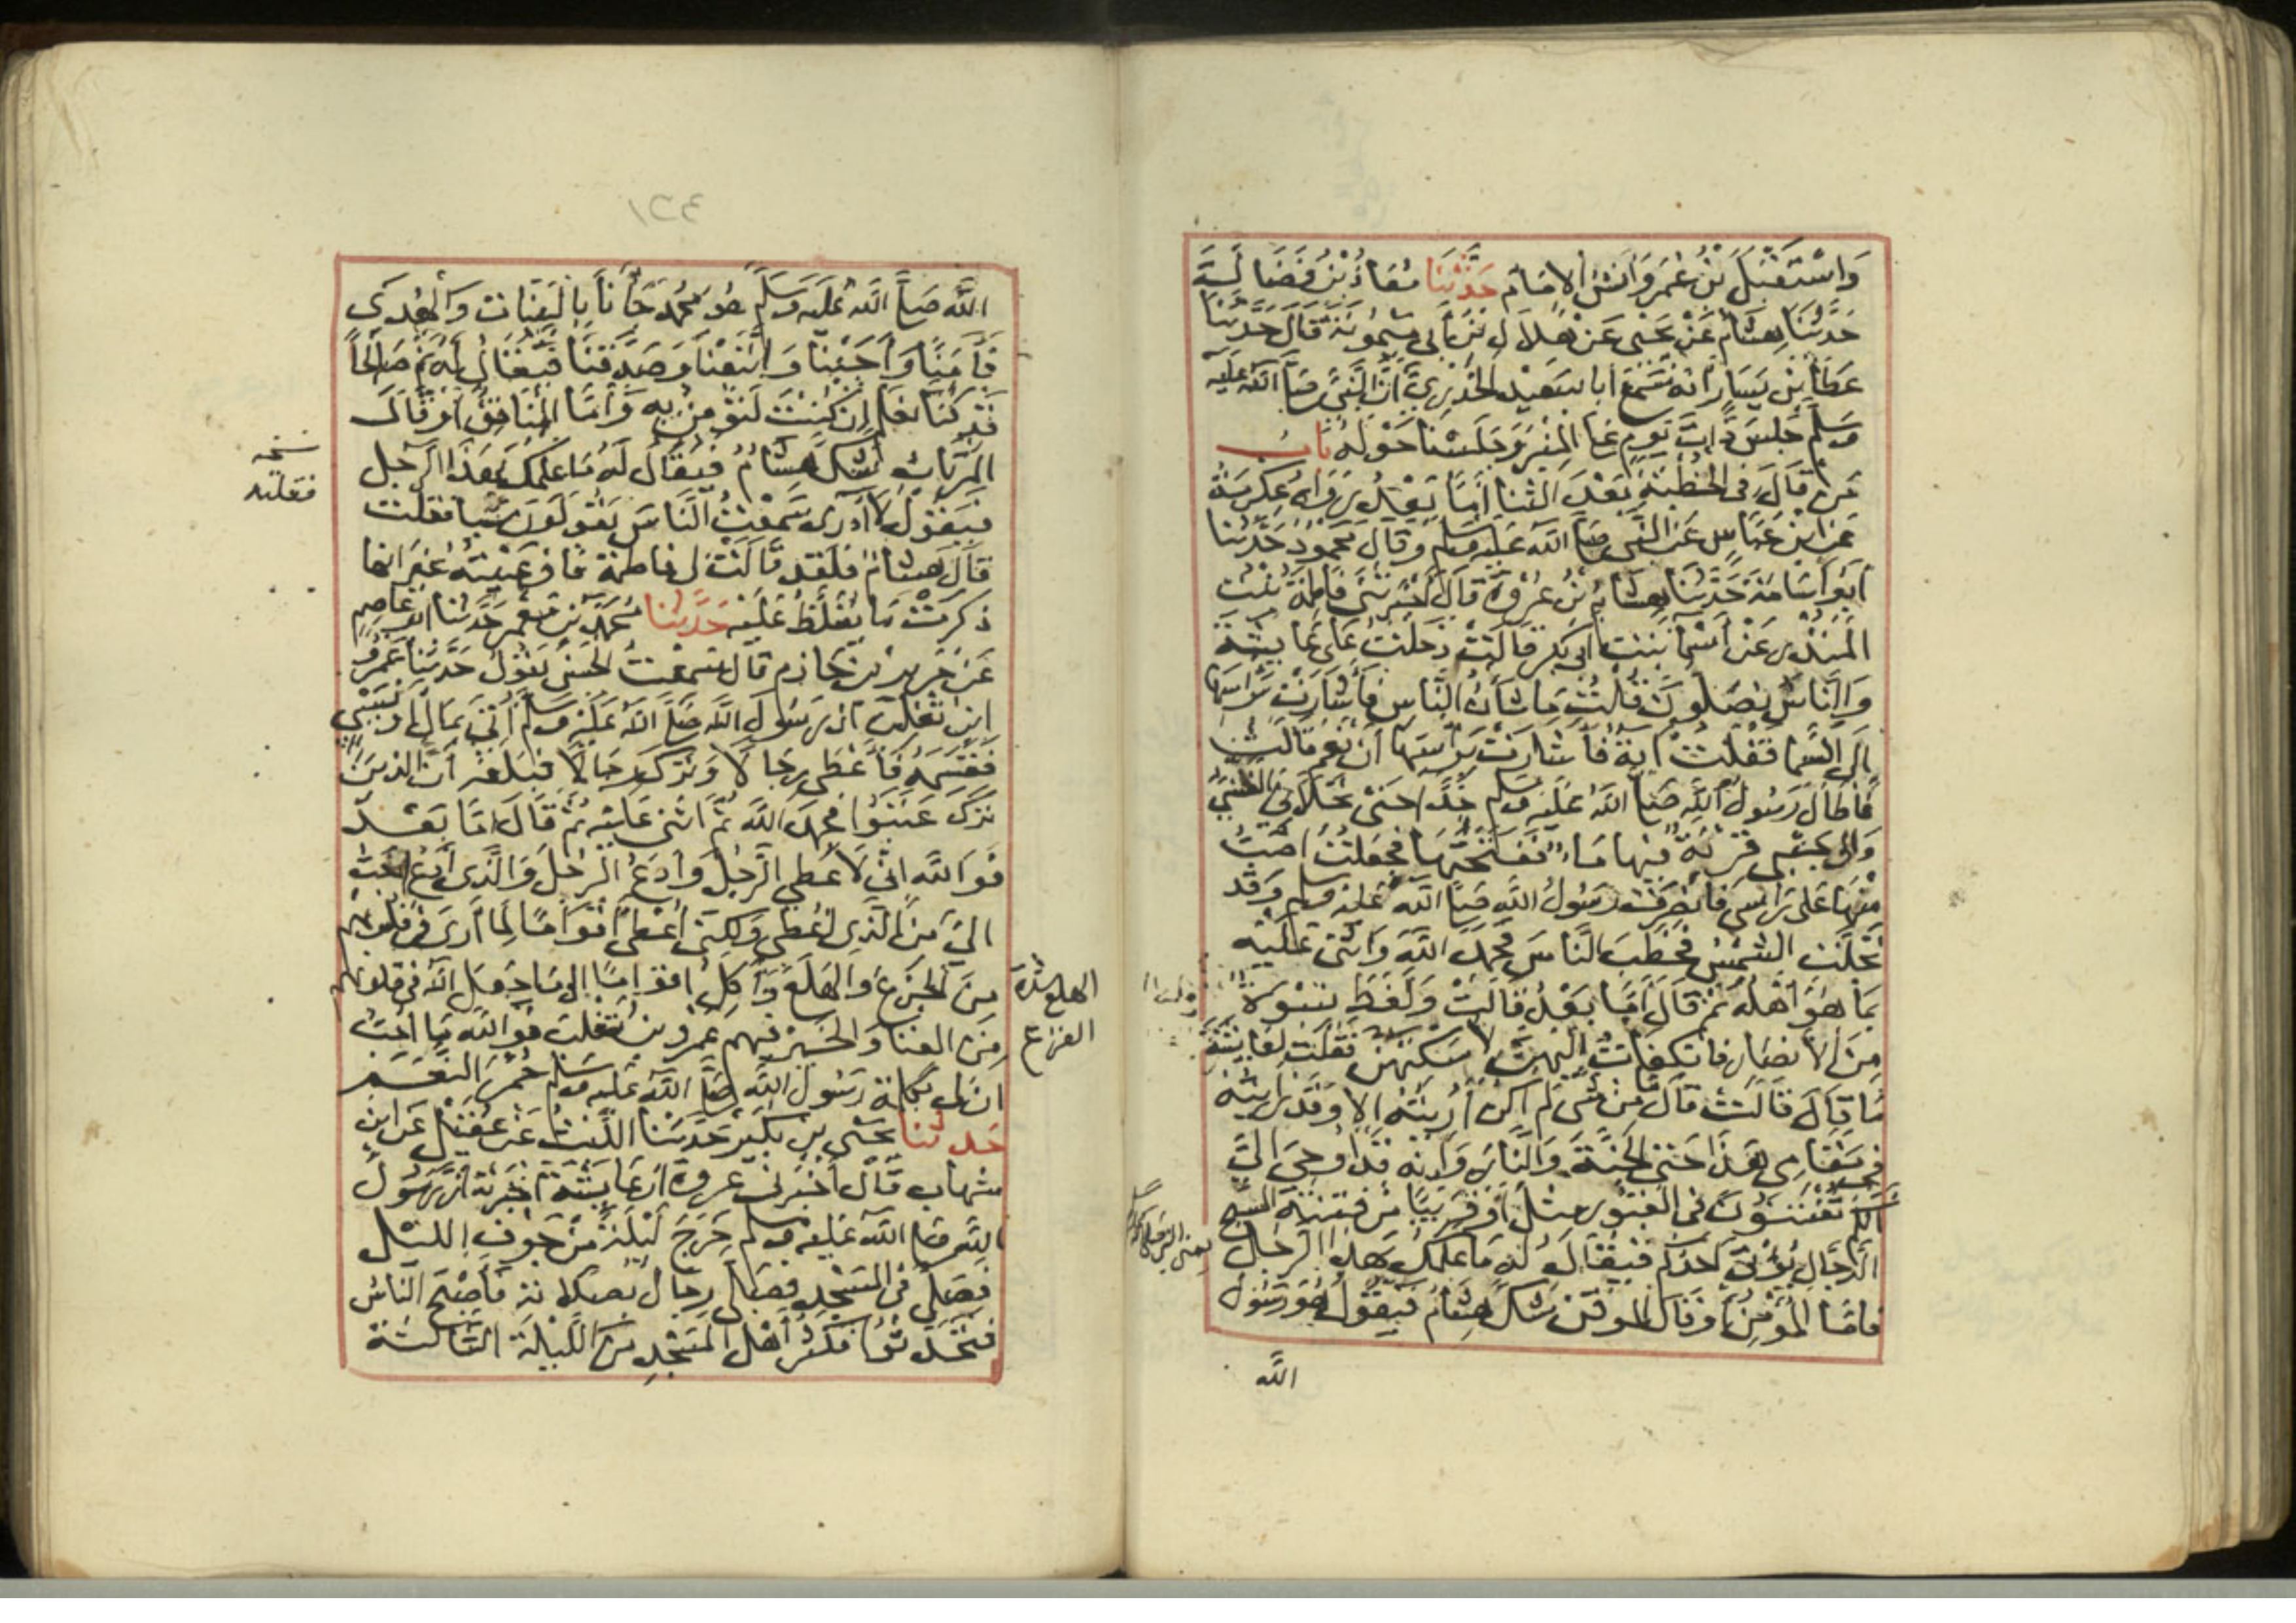 واستقبل بن عمر وانس الامام حدثنا معاذ بن فضالة
حدثنا هشام عن يحيى عن هلال بن ابي ميمونة قال حدثنا
عطا بن يسار انه سمع ابا سعيد الخدري ان النبي صلى الله عليه
وسلم جلس ذات يوم على المنبر وجلسنا حوله باب
من قال في الخطبة بعد الثنا اما بعد رواه عكرمة
عن ابن عباس عن النبي صلى الله عليه وسلم وقال محمود حدثنا
ابو اسامة حدثنا هشام بن عروة قال اخبرتني فاطمة بنت
المنذر عن اسما بنت ابي بكر قالت دخلت على عايشة
والناس يصلون قلت ما شان الناس فاشارت براسها
الى السما فقلت اية فاشارت براسها ان نعم قالت
فاطال رسول الله صلى الله عليه وسلم جدا حتى تجلاني الغشي
والى جنبي قربة فيها ما ففتحتها فجعلت اصب
منها على راسي فانصرف رسول الله صلى الله عليه وسلم وقد
تجلت الشمس فخطب الناس فحمد الله واثنى عليه
بما هو اهله ثم قال اما بعد قالت ولغط نسوة
من الانصار فانكفات اليهن لاسكتهن فقلت لعايشة
ما قال قالت قال ما من شي لم اكن اريته الا وقد رايته
في مقامي هذا حتى الجنة والنار وانه قد اوحي الي
انكم تفتنون في القبور مثل او قريبا من فتنة المسيح
الدجال يؤتى احدكم فيقال له ما علمك بهذا الرجل
فاما المؤمن او قال الموقن شك هشام فيقول هو رسول
الله
الله صلى الله عليه وسلم هو محمد جانا بالبينات والهدى
فامنا واجبنا واتبعنا وصدقنا فيقال له نم صالحا
قد كنا نعلم ان كنت لتؤمن به واما المنافق او قال
المرتاب شك هشام فيقال له ما علمك بهذا الرجل
نسخه
فقلته
فيقول لا ادري سمعت الناس يقولون شيا فقلت
قال هشام فلقد قالت لي فاطمة فاوعيته غير انها
ذكرت ما يغلظ عليه حدثنا محمد بن معمر حدثنا ابو عاصم
عن جرير بن حازم قال سمعت الحسن يقول حدثنا عمرو
ابن تغلب ان رسول الله صلى الله عليه وسلم اتي بمال او بسبي
فقسمه فاعطى رجالا وترك رجالا فبلغه ان الذين
ترك عتبوا فحمد الله ثم اثنى عليه ثم قال اما بعد
فوالله اني لاعطي الرجل وادع الرجل والذي ادع احب
الي من الذي اعطي ولكني اعطي اقواما لما ارى في قلوبهم
من الجزع والهلع واكل اقواما الى ما جعل الله في قلوبهم
الهلع شدة
الفزع
من الغنا والخير فيهم عمرو بن تغلب فوالله ما احب
ان لي بكلمة رسول الله صلى الله عليه وسلم حمر النعم
حدثنا يحيى بن بكير حدثنا الليث عن عقيل عن ابن
شهاب قال اخبرني عروة ان عايشة اخبرته ان رسول
الله صلى الله عليه وسلم خرج ليلة من جوف الليل
فصلى في المسجد فصلى رجال بصلاته فاصبح الناس
فتحدثوا فكثر اهل المسجد من الليلة الثالثة